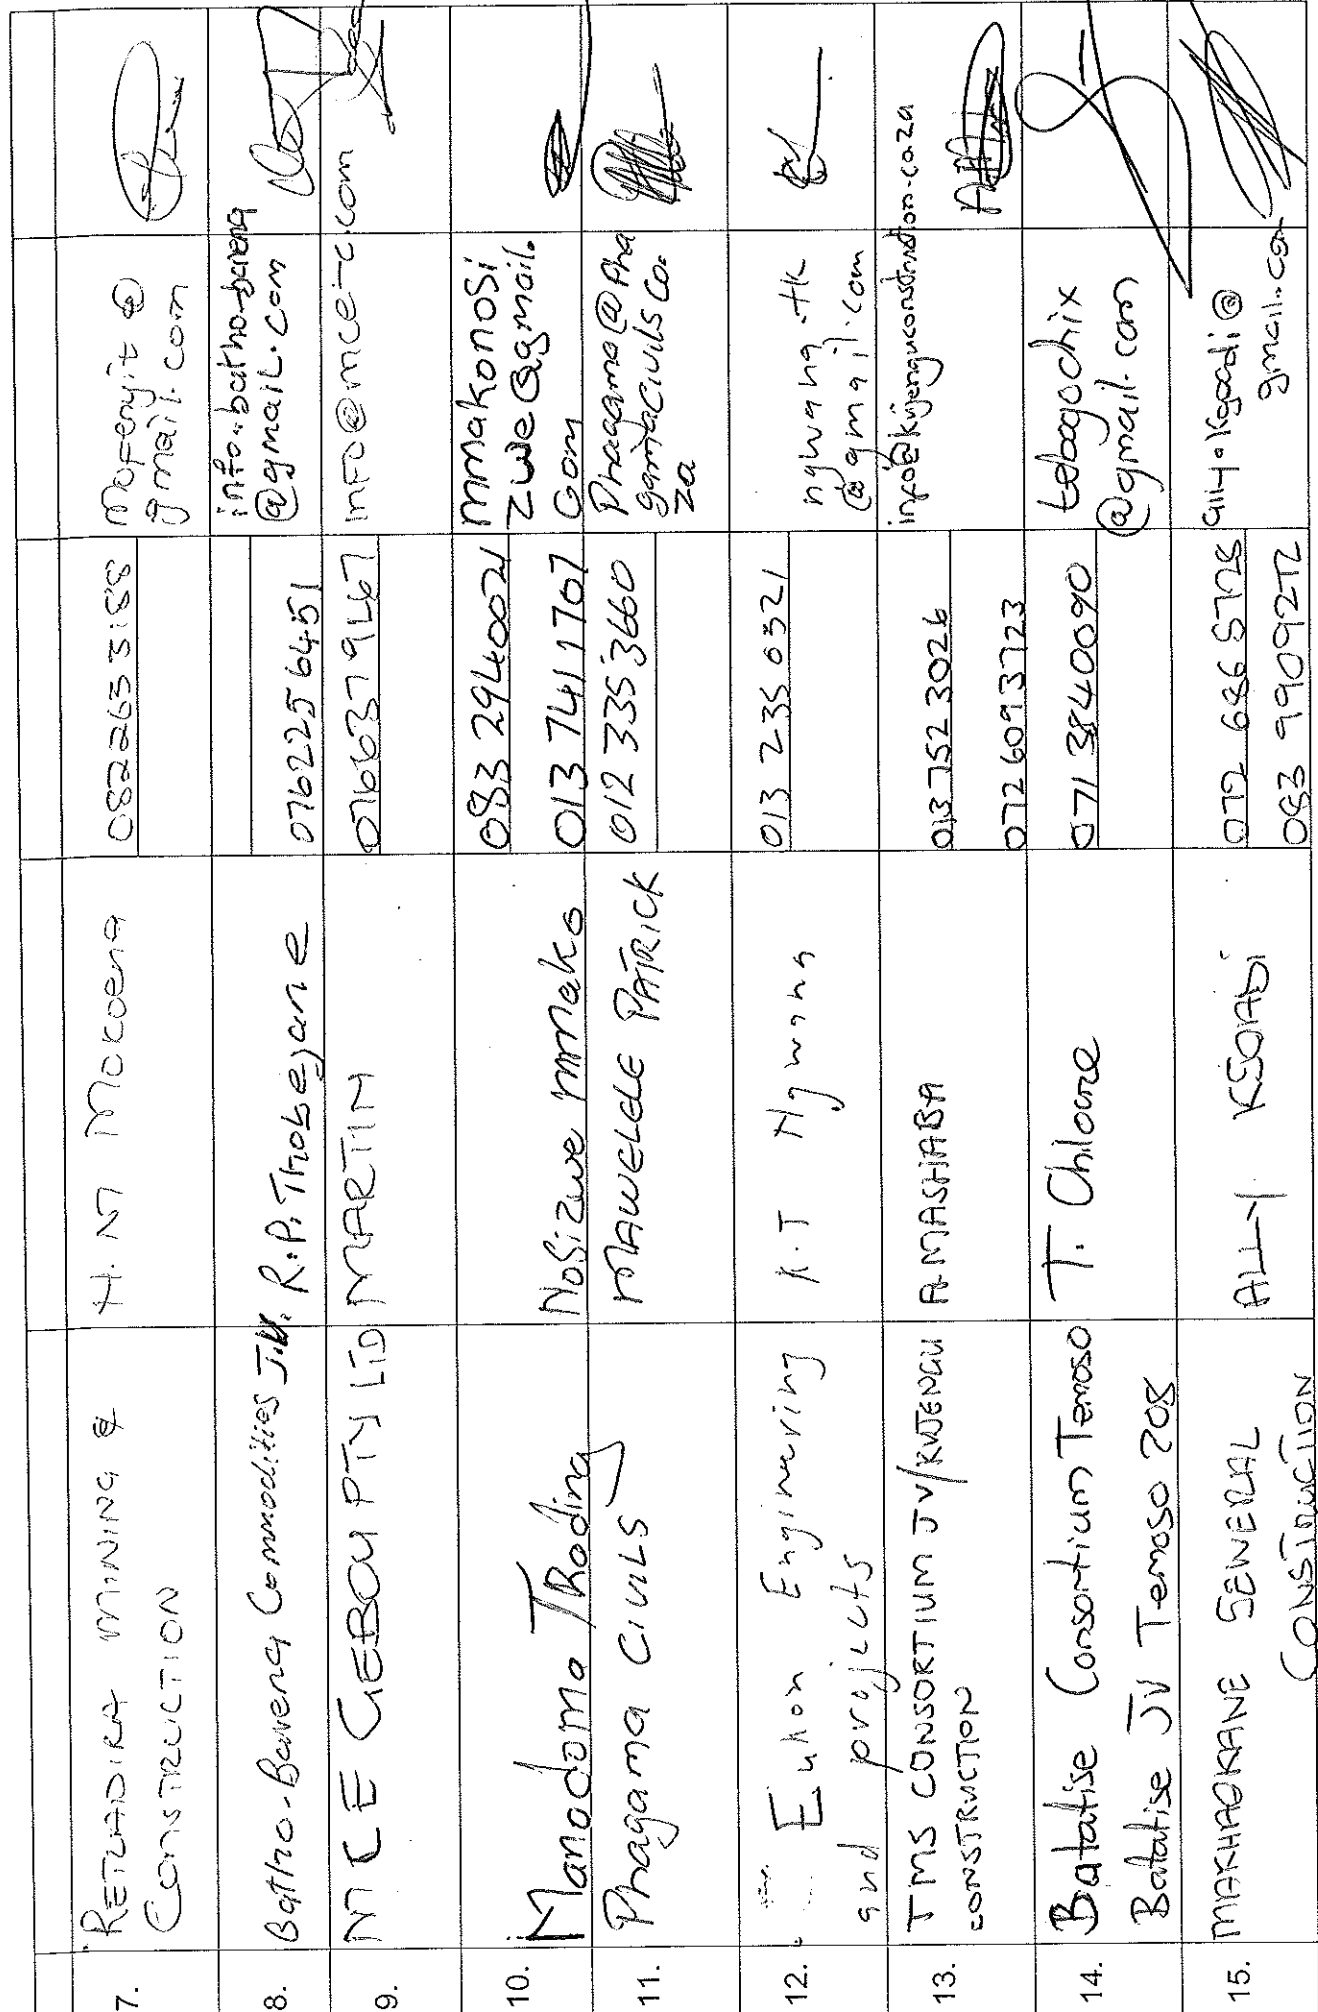 7.
RETLADIRA MINING &
CONSTRUCTION
H.M MOKOENA
0822633188
mofenyit@
gmail.com
8.
Batho-Barena Commodities J.V.
R.P. Thobejane
0762256451
info.batho-barena
@gmail.com
9.
M C E GEBOU PTY LTD
MARTIN
0766379467
INFO@mce-c.com
10.
Manodoma Trading
Nosizwe mmako
083 2940021
013 7411707
mmakonosi
zwe@gmail.
com
11.
Phagama CIVILS
MAWELELE PATRICK
012 335 3660
Phagama@Pha
gamaCivils Co.
za
12.
Eukon Engineering
and projects
K.T Ngwana
013 235 0321
ngwana.tk
@gmail.com
13.
TMS CONSORTIUM JV/KUJENGU
CONSTRUCTION
A.MASHABA
013 752 3026
072 609 3723
info@kujenguconstruction.co.za
14.
Batatise Consortium Temoso
Batatise JV Temoso 208
T. Chiloane
071 3840090
tebogochix
@gmail.com
15.
MAKHAOKANE GENERAL
CONSTRUCTION
ALLY KGOADI
072 686 5728
083 9909272
ally.kgoadi@
gmail.com